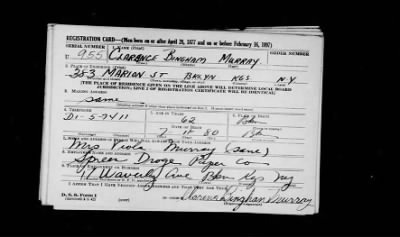 REGISTRATION CARD—(Men born on or after April 28, 1877 and on or before February 16, 1897)
SERIAL NUMBER 1. NAME (Print) ORDER NUMBER
U 955 CLARENCE BINGHAM MURRAY
2. PLACE OF RESIDENCE (Print)
383 MARION ST BKLYN KGS N.Y.
(THE PLACE OF RESIDENCE GIVEN ON THE LINE ABOVE WILL DETERMINE LOCAL BOARD
JURISDICTION; LINE 2 OF REGISTRATION CERTIFICATE WILL BE IDENTICAL)
3. MAILING ADDRESS
same
4. TELEPHONE 5. AGE IN YEARS 6. PLACE OF BIRTH
DI-5-9411 62
DATE OF BIRTH
80
7. NAME AND ADDRESS OF PERSON WHO WILL ALWAYS KNOW YOUR ADDRESS
Mrs Viola Murray (same)
8. EMPLOYER'S NAME AND ADDRESS
Paper Co
9. PLACE OF EMPLOYMENT OR BUSINESS
Waverly Ave Kgs Ny
I AFFIRM THAT I HAVE VERIFIED ABOVE ANSWERS AND THAT THEY ARE TRUE.
D. S. S. Form 1
Clarence Bingham Murray